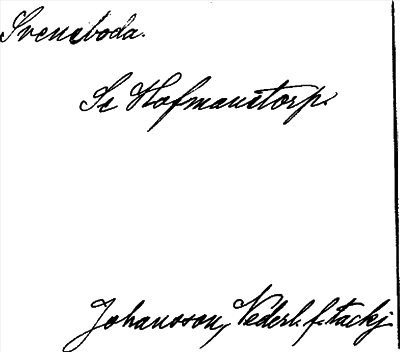 Svensboda.
Se Hofmanstorp.
Johansson, Nederl. f. tackj